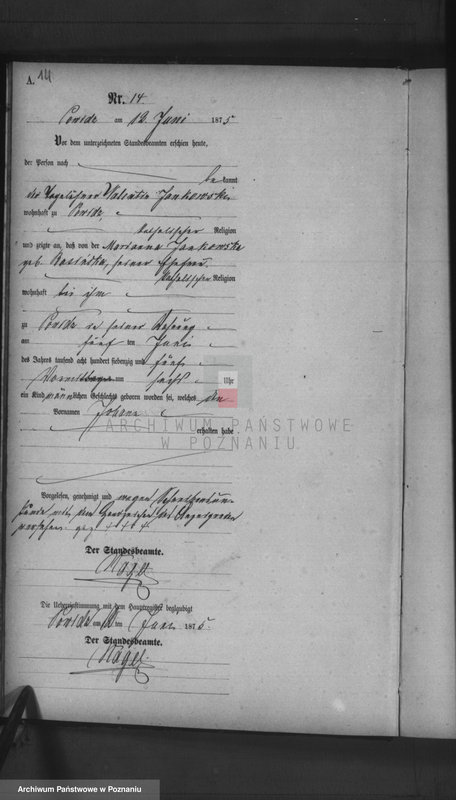 A. 14
Nr. 14
Powidz am 12. Juni 1875
Vor dem unterzeichneten Standesbeamten erschien heute,
der Person nach
be kannt
der Tagelöhner Valentin Jankowski
wohnhaft zu Powidz,
katholischer Religion
und zeigte an, daß von der Marianna Jankowska
geb. seiner Ehefrau
katholischer Religion
wohnhaft bei ihm
zu Powidz in seiner Wohnung
am fünf ten Juni
des Jahres tausend acht hundert siebenzig und fünf
Vormittags um sechs Uhr
ein Kind männlichen Geschlechts geboren worden sei, welches den
Vornamen Johann
erhalten habe
ARCHIWUM PAŃSTWOWE
W POZNANIU
Vorgelesen, genehmigt und wegen Schreibensun-
kunde mit dem Handzeichen des Anzeigenden
versehen. gez. + + + +
Der Standesbeamte.
Nagel
Die Uebereinstimmung mit dem Hauptregister beglaubigt
Powidz am 12 ten Juni 1875.
Der Standesbeamte.
Nagel
Archiwum Państwowe w Poznaniu